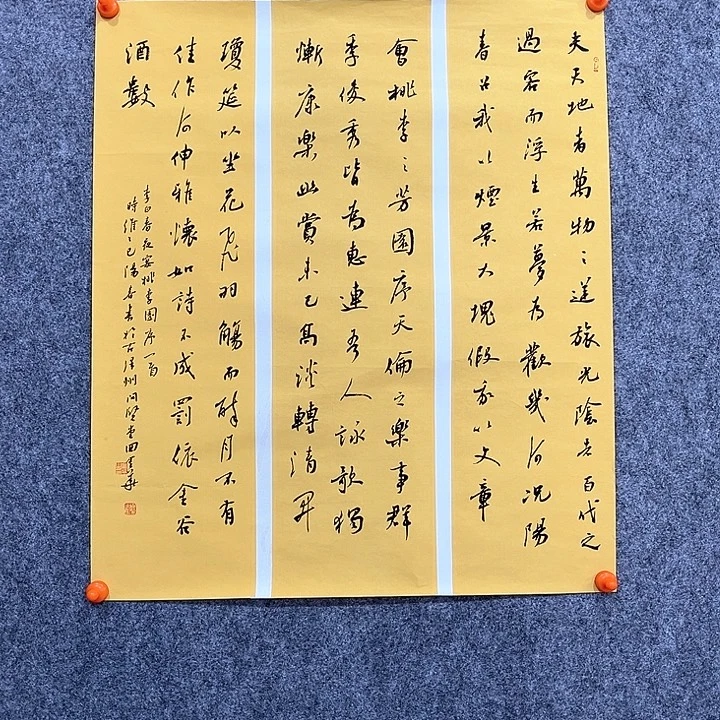 夫天地者萬物之逆旅光陰者百代之
過客而浮生若夢為歡幾何況陽
春召我以煙景大塊假我以文章
會桃李之芳園序天倫之樂事群
季俊秀皆為惠連吾人詠歌獨
慚康樂幽賞未已高談轉清開
瓊筵以坐花飛羽觴而醉月不有
佳作何伸雅懷如詩不成罰依金谷
酒數
李白春夜宴桃李園序一首
時維乙巳陽春書於古